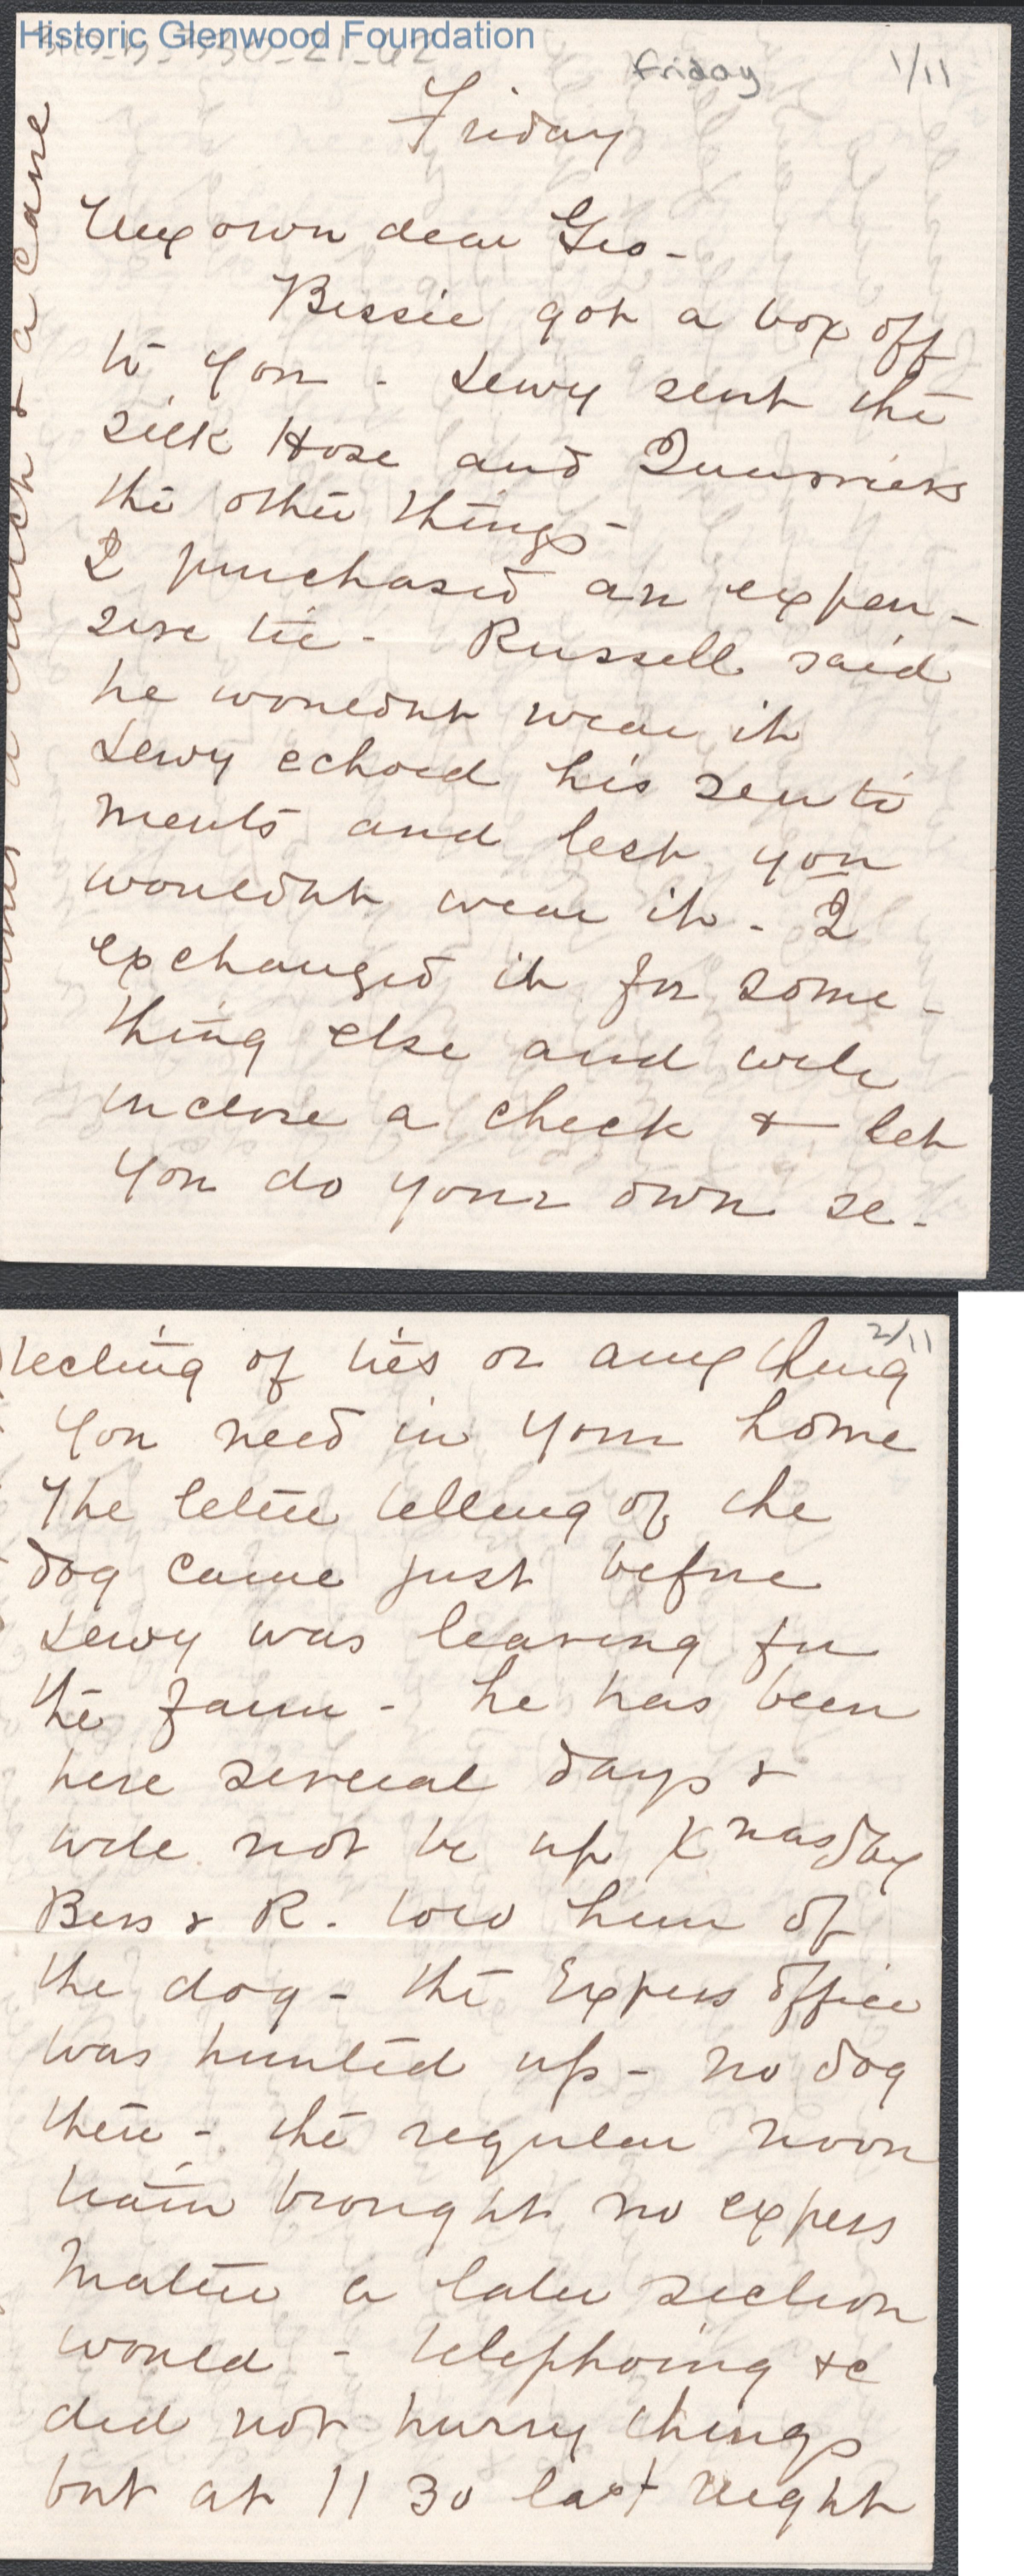 Historic Glenwood Foundation
Friday
1/11
Friday
My own dear Geo -
Bessie got a box off
to you - Lewy sent the
silk Hose and
the other things -
I purchased an expen -
sive tie - Russell said
he wouldnt wear it
Lewy echoed his senti
ments and lest you
wouldnt wear it - I
exchanged it for some -
thing else and will
inclose a check & let
you do your own se -
& a cane
2/11
lecting of ties or any thing
you need in your home
The letter telling of the
dog came just before
Lewy was leaving for
the farm - he has been
here several days &
will not be up Xmas day
Bess & R. told him of
the dog - the Express office
was hunted up - no dog
there - the regular noon
train brought no express
matter a later section
would - telephoing &c
did not hurry things
but at 11 30 last night